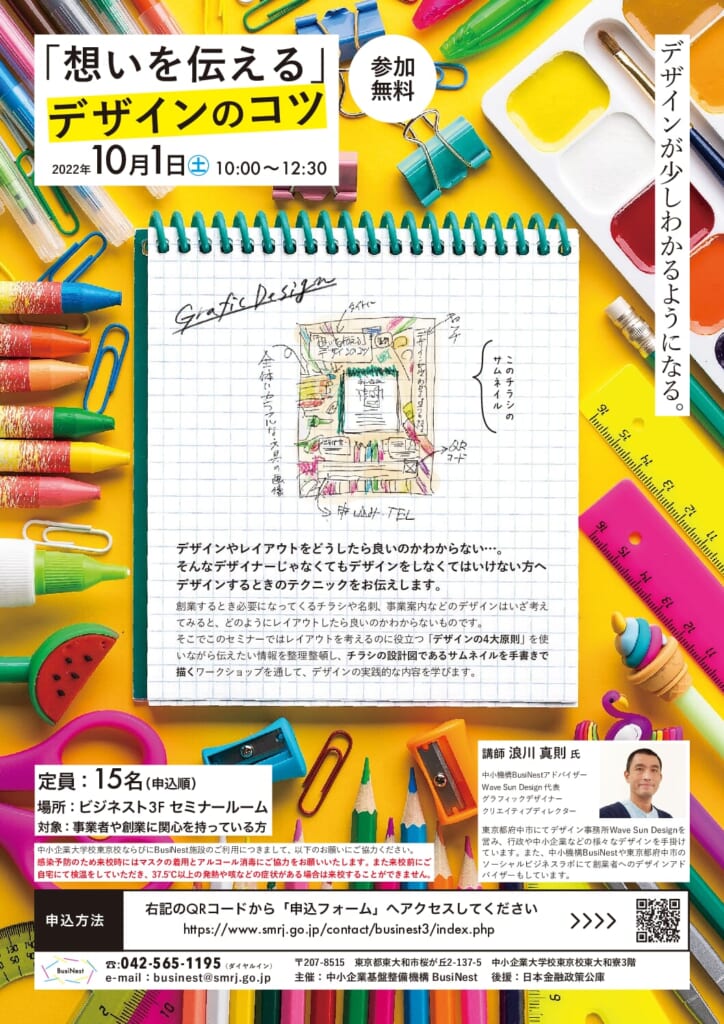 「想いを伝える」
デザインのコツ
2022年10月1日㊏ 10:00～12:30
参加
無料
デザインが少しわかるようになる。
Grafic Design
タイトル
このチラシの
サムネイル
QR
コード
全体にカラフルな文具の画像
TEL
デザインやレイアウトをどうしたら良いのかわからない…。
そんなデザイナーじゃなくてもデザインをしなくてはいけない方へ
デザインするときのテクニックをお伝えします。
創業するとき必要になってくるチラシや名刺、事業案内などのデザインはいざ考え
てみると、どのようにレイアウトしたら良いのかわからないものです。
そこでこのセミナーではレイアウトを考えるのに役立つ「デザインの4大原則」を使
いながら伝えたい情報を整理整頓し、チラシの設計図であるサムネイルを手書きで
描くワークショップを通して、デザインの実践的な内容を学びます。
16
15
14
13
12
11
16
15
14
13
12
定員：15名(申込順)
場所：ビジネスト3F セミナールーム
対象：事業者や創業に関心を持っている方
講師 浪川 真則 氏
中小機構BusiNestアドバイザー
Wave Sun Design 代表
グラフィックデザイナー
クリエイティブディレクター
東京都府中市にてデザイン事務所Wave Sun Designを
営み、行政や中小企業などの様々なデザインを手掛け
ています。また、中小機構BusiNestや東京都府中市の
ソーシャルビジネスラボにて創業者へのデザインアド
バイザーもしています。
中小企業大学校東京校ならびにBusiNest施設のご利用につきまして、以下のお願いにご協力ください。
感染予防のため来校時にはマスクの着用とアルコール消毒にご協力をお願いいたします。また来校前にご
自宅にて検温をしていただき、37.5℃以上の発熱や咳などの症状がある場合は来校することができません。
申込方法
右記のQRコードから「申込フォーム」へアクセスしてください
https://www.smrj.go.jp/contact/businest3/index.php
>>>>
BusiNest
☎:042-565-1195 (ダイヤルイン)
e-mail：businest@smrj.go.jp
〒207-8515 東京都東大和市桜が丘2-137-5 中小企業大学校東京校東大和寮3階
主催：中小企業基盤整備機構 BusiNest 後援：日本金融政策公庫